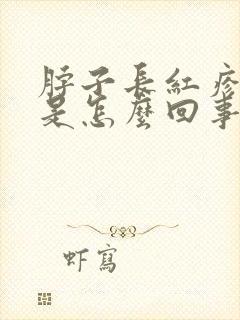 脖子長紅疹
是怎麼回事
虾寫